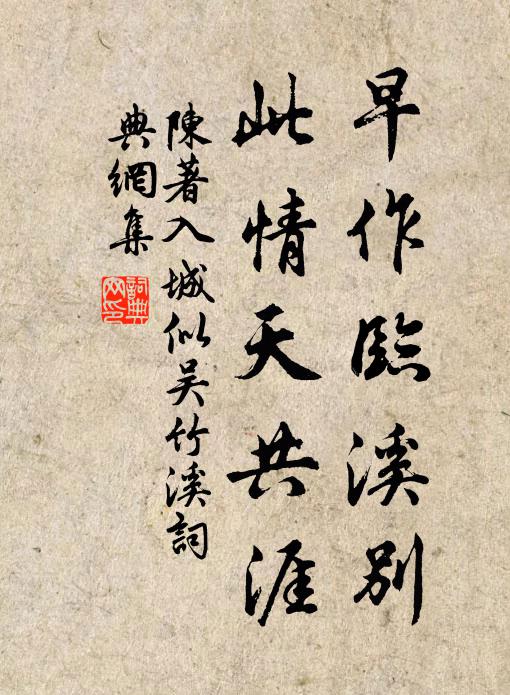 早作臨溪別
此情天共涯
陳著入城似吳竹溪詞
典網集
詞典網印